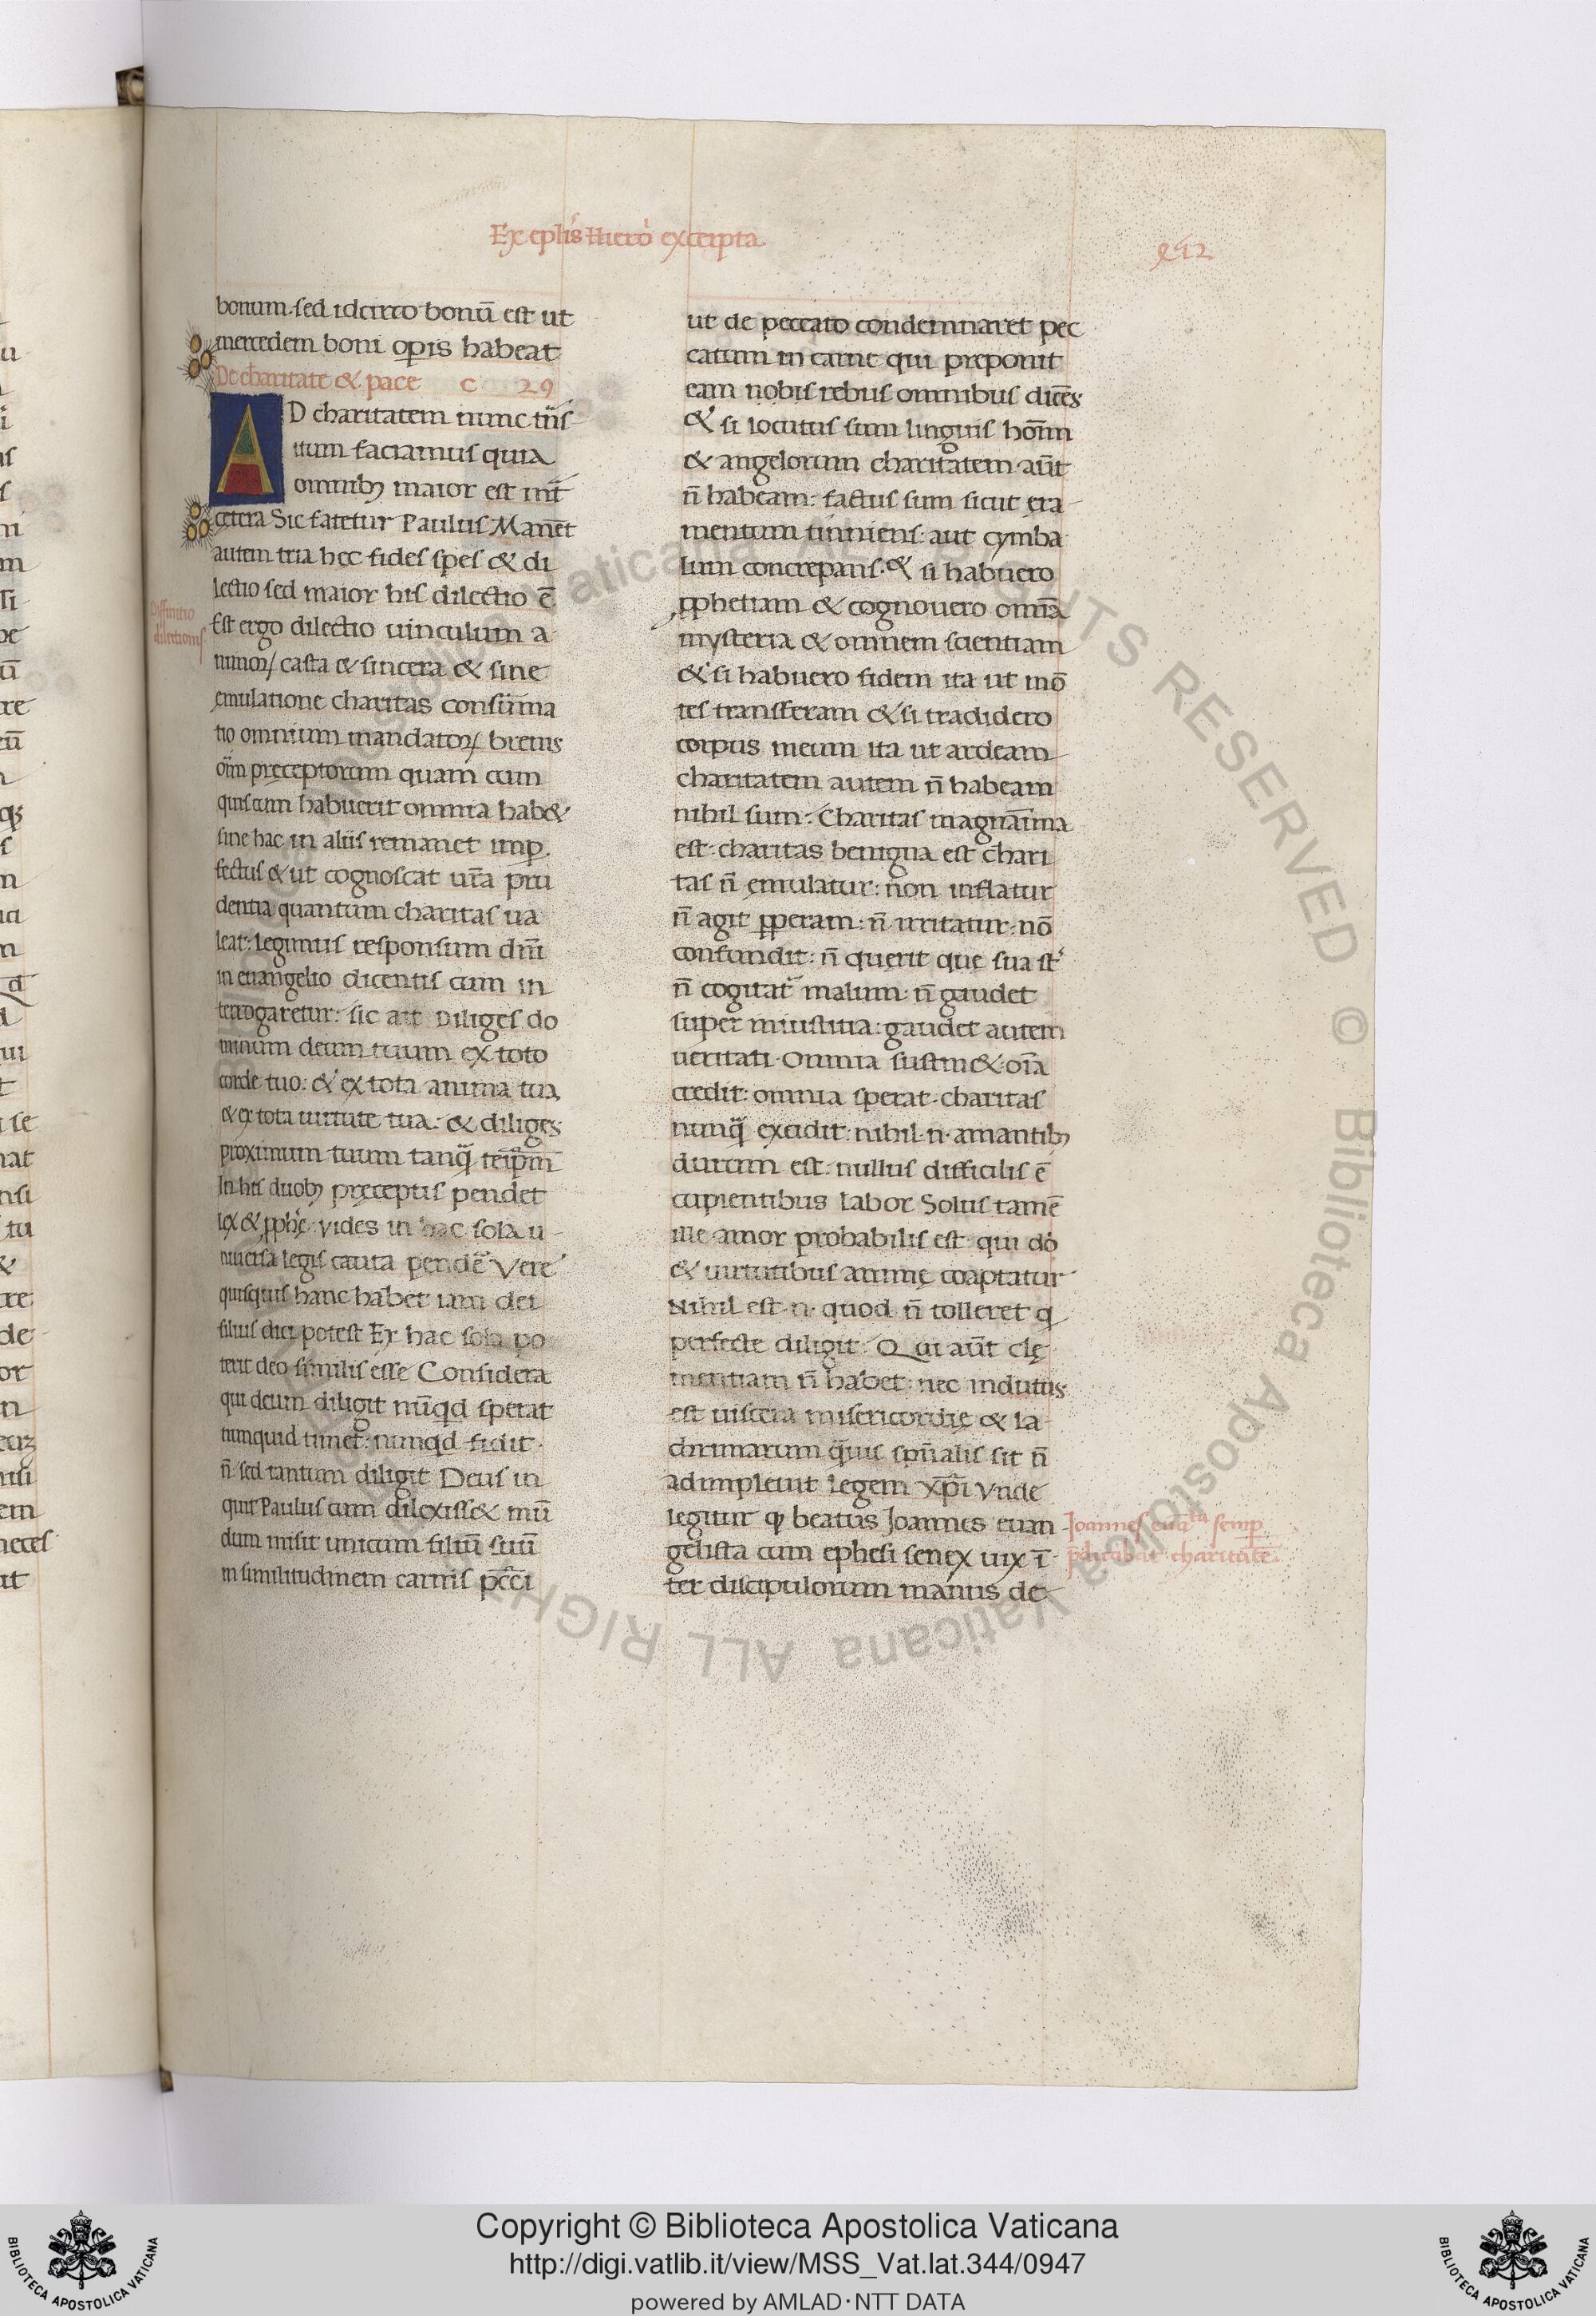 Ex eplis Hiero excerpta
bonum. sed idcirco bonū est ut
mercedem boni opis habeat
De charitate & pace c 29
AD charitatem nunc trās
itum faciamus quia
omnibꝫ maior est int̄
cetera Sic fatetur Paulus Manēt
autem tria hec fides spes & di
lectio sed maior his dilectio ē
Diffinitio
dilectionis
Est ergo dilectio uinculum a
nimoꝝ casta & sincera & sine
ęmulatione charitas consūma
tio omnium mandatoꝝ breuis
oīm pręceptorum quam cum
quis cum habuerit omnia hab&
sine hac in aliis remanet imꝑ
fectus & ut cognoscat ur̄a pru
dentia quantum charitas ua
leat: legimus responsum dn̄i
in euangelio dicentis cum in
terrogaretur: sic ait Diliges do
minum deum tuum ex toto
corde tuo: & ex tota anima tua
& ex tota uirtute tua: & diliges
proximum tuum tanq̄ teip̄m
In his duobꝫ pręceptis pendet
lex & ꝓphę. Vides in hac sola u
niuersa legis causa pendē Vere
quisquis hanc habet iam dei
filius dici potest Ex hac sola po
terit deo similis esse Considera
qui deum diligit nūqd sperat
nunquid timet: nunqd fidit
n̄. sed tantum diligit Deus in
quit Paulus cum dilexiss& mū
dum misit unicum filiū suū
in similitudinem carnis pcc̄i
ut de peccato condemnaret pec
catum in carne qui preponit
eam nobis rebus omnibus dicēs
& si locutus sum linguis hom̄
& angelorum charitatem aūt
n̄ habeam: factus sum sicut era
mentum tinniens: aut cymba
lum concrepans. & si habuero
ꝓphetiam & cognouero omnā
mysteria & omnem scientiam
& si habuero fidem ita ut mō
tes transferam & si tradidero
corpus meum ita ut ardeam
charitatem autem n̄ habeam
nihil sum. Charitas magnāima
est: charitas benigna est chari
tas n̄ ęmulatur: non inflatur
n̄ agit ꝑperam: n̄ irritatur: nō
confundit: n̄ quęrit que sua st̄
n̄ cogitat malum: n̄ gaudet
super iniustitia: gaudet autem
ueritati. Omnia sustin& oīa
credit: omnia sperat. charitas
nunq̄ excidit: nihil .n. amantibꝫ
durum est: nullus difficilis ē
cupientibus labor Solus tamē
ille amor probabilis est qui dō
& uirtutibus animę coaptatur
Nihil est .n. quod n̄ tolleret q
perfecte diligit. Qui aūt clę
mentiam n̄ habet: nec indutus
est uiscera misericordię & la
chrimarum q̄uis spūalis sit n̄
adimpleuit legem xp̄i Vnde
legitur ꝙ beatus Joannes euan
gelista cum ephesi senex uix ī
ter discipulorum manus de
Joannes euāta semꝑ
p̄dicabat charitatē
Copyright © Biblioteca Apostolica Vaticana
http://digi.vatlib.it/view/MSS_Vat.lat.344/0947
powered by AMLAD·NTT DATA